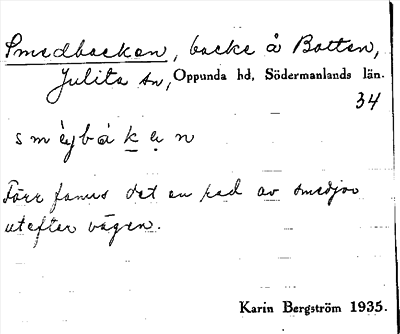 Smedbacken, backe å Botten,
Julita sn, Oppunda hd, Södermanlands län.
34
smèybàkẹn
Förr fanns det en rad av smedjor
utefter vägen.
Karin Bergström 1935.